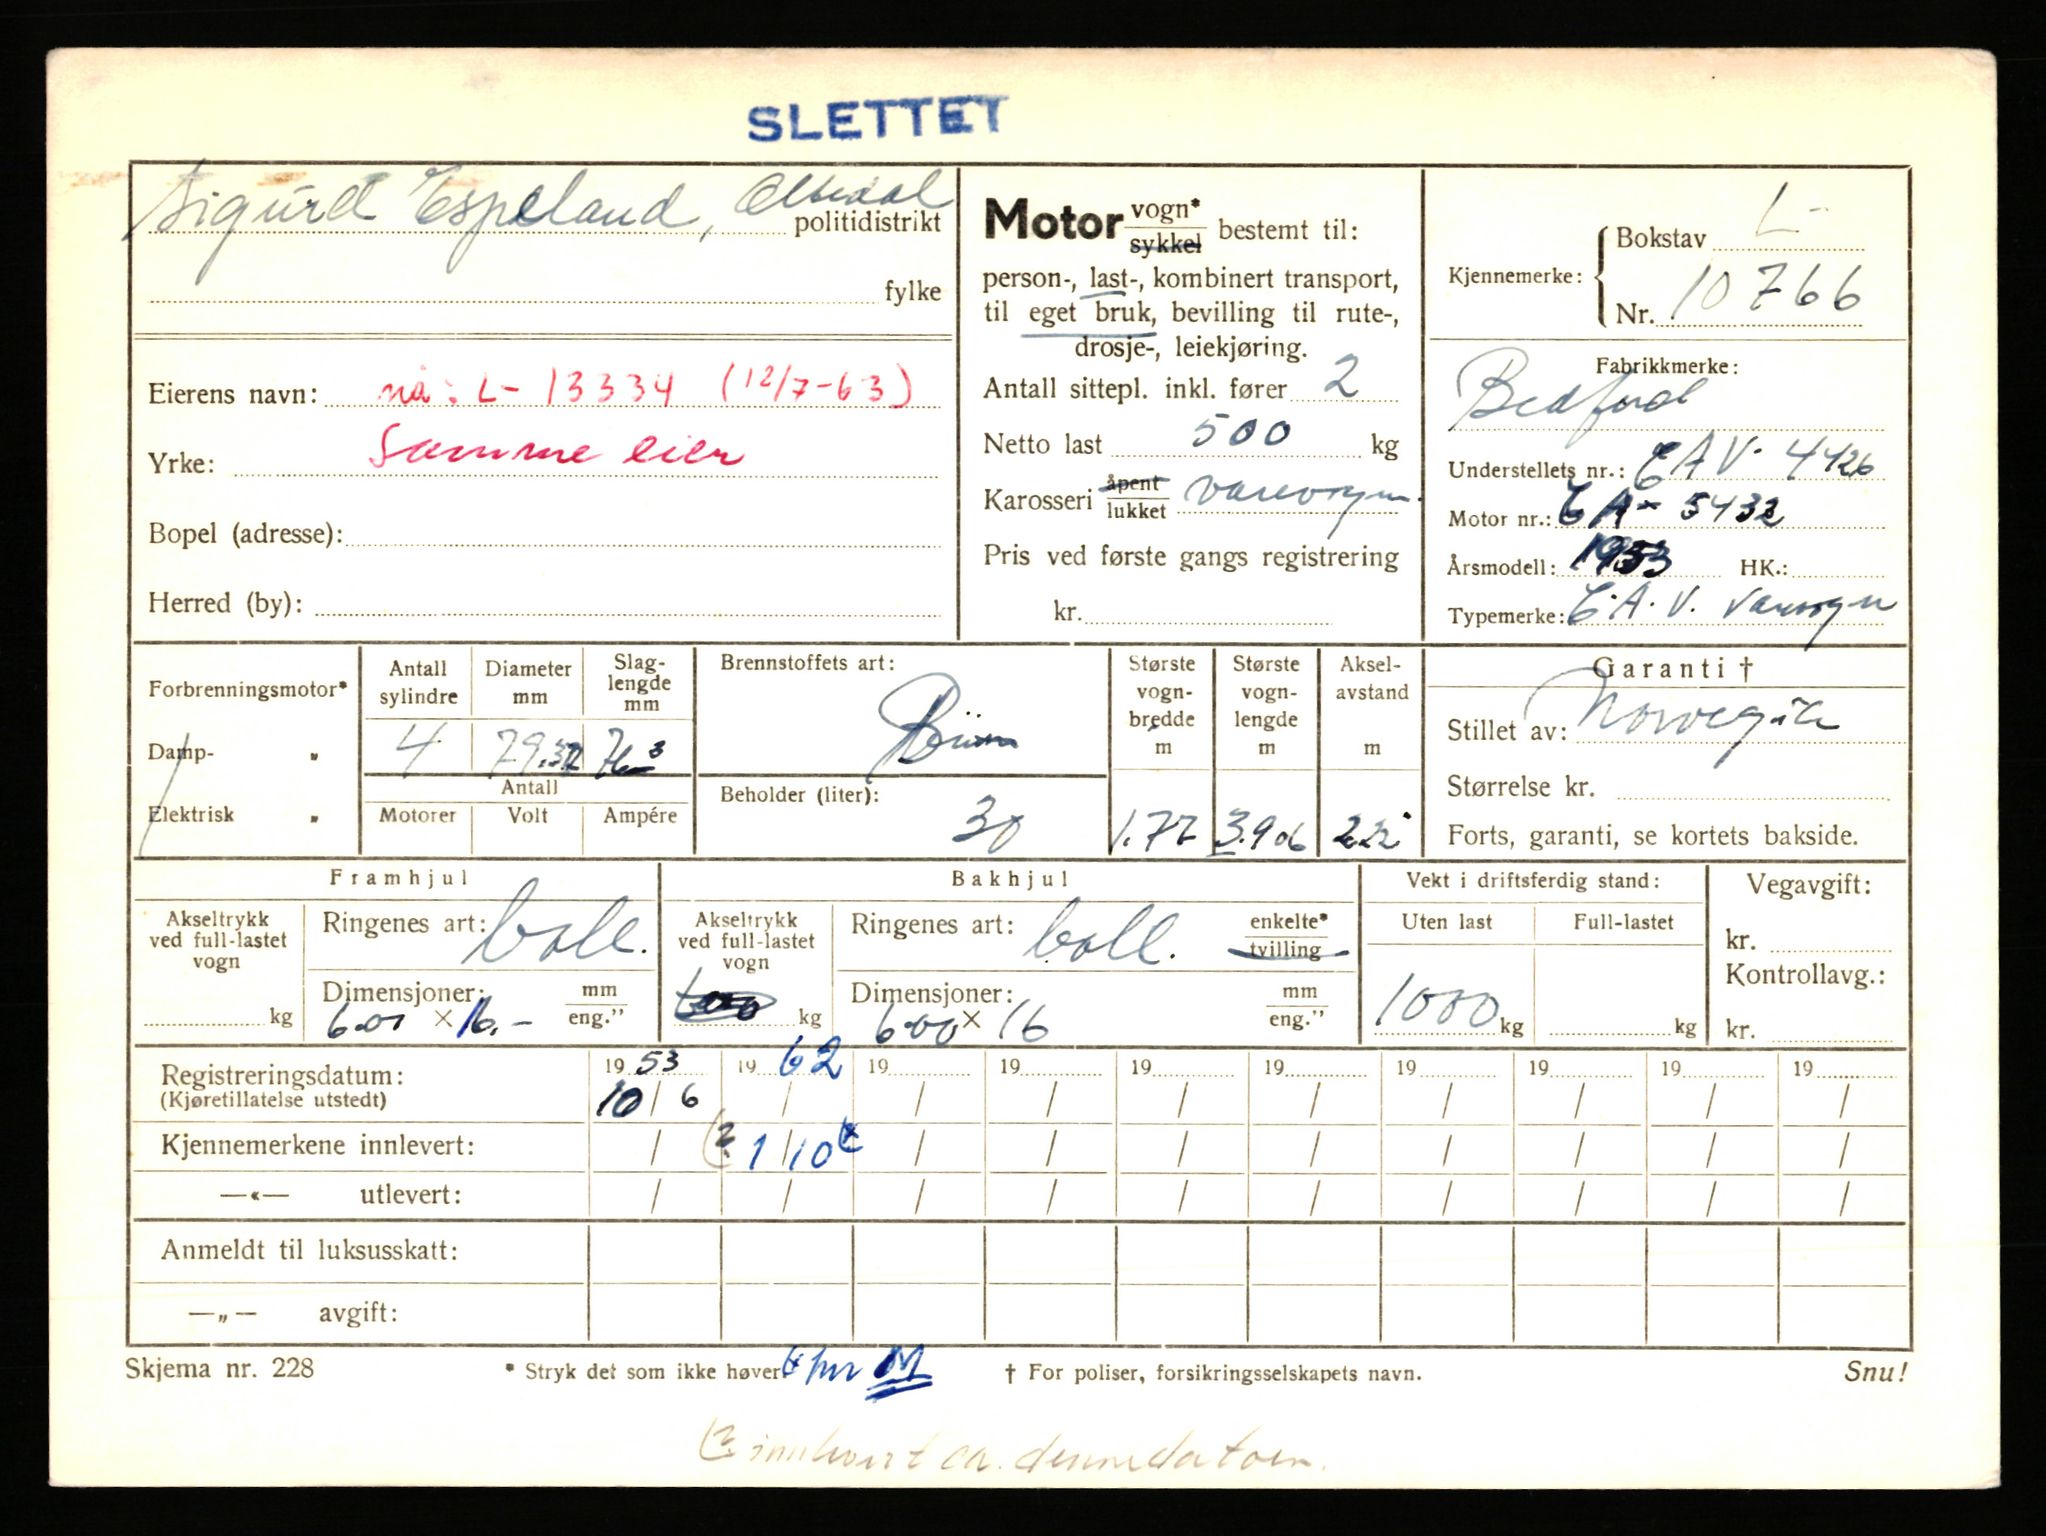 SLETTET
Sigurd Espeland, Oltedal
politidistrikt
fylke
Eierens navn: nå: L- 13334 (12/7-63)
Yrke: Samme eier
Bopel (adresse):
Herred (by):
Motor vogn* sykkel bestemt til:
person-, last-, kombinert transport,
til eget bruk, bevilling til rute-,
drosje-, leiekjøring.
Antall sittepl. inkl. fører 2
Netto last 500 kg
Karosseri åpent lukket varevogn.
Pris ved første gangs registrering
kr.
Kjennemerke: Bokstav L-
Nr. 10766
Fabrikkmerke:
Bedford
Understellets nr.: EAV. 4426
Motor nr.: EA- 5432
Årsmodell: 1953 HK.:
Typemerke: E.A.V. Varevogn
Forbrenningsmotor*
Damp- „
Elektrisk „
Antall sylindre
Diameter mm
Slag-lengde mm
4 79.37 76
Antall
Motorer Volt Ampére
Brennstoffets art:
Beholder (liter):
30
Største vogn-bredde m
1.77
Største vogn-lengde m
3.906
Aksel-avstand m
Garanti †
Stillet av: Norvegia
Størrelse kr.
Forts, garanti, se kortets bakside.
Framhjul
Akseltrykk ved full-lastet vogn
kg
Ringenes art: ball.
Dimensjoner: mm eng.”
6.00 × 16.-
Bakhjul
Akseltrykk ved full-lastet vogn
kg
Ringenes art: ball. enkelte* tvilling
Dimensjoner: mm eng.”
600 × 16
Vekt i driftsferdig stand:
Uten last Full-lastet
1000 kg kg
Vegavgift:
kr.
Kontrollavg.:
kr.
Registreringsdatum: 19 53 19 62 19 19 19 19 19 19 19 19
(Kjøretillatelse utstedt) 10/6 / / / / / / / / /
Kjennemerkene innlevert: / (2 1/10 (x / / / / / / / /
—«— utlevert: / / / / / / / / / /
Anmeldt til luksusskatt:
—„— avgift:
Skjema nr. 228
* Stryk det som ikke høver.
† For poliser, forsikringsselskapets navn.
Snu!
(2 innlevert ca. denne datoen.